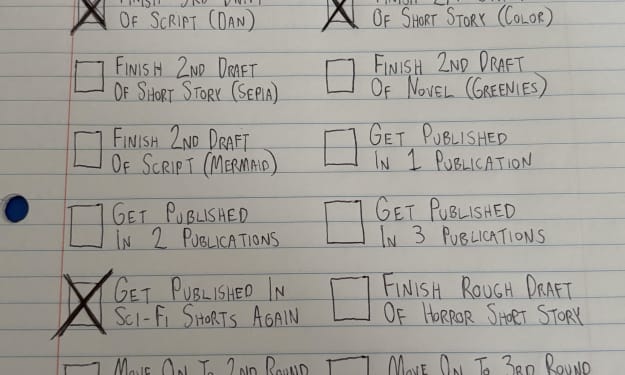 OF SCRIPT (DAN)
OF SHORT STORY (COLOR)
FINISH 2ND DRAFT
OF SHORT STORY (SEPIA)
FINISH 2ND DRAFT
OF NOVEL (GREENIES)
FINISH 2ND DRAFT
OF SCRIPT (MERMAID)
GET PUBLISHED
IN 1 PUBLICATION
GET PUBLISHED
IN 2 PUBLICATIONS
GET PUBLISHED
IN 3 PUBLICATIONS
GET PUBLISHED IN
SCI-FI SHORTS AGAIN
FINISH ROUGH DRAFT
OF HORROR SHORT STORY
MOVE ON TO 2ND ROUND
MOVE ON TO 3RD ROUND